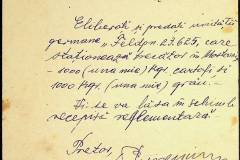 Eliberați și predați unității
germane „Feldpn. 27.625, care
staționează
1000 (una mie) kgr. cartofi și
1000 kgr. (una mie) grâu.-
Vi se va lăsa în schimb
recepisă reglementară”
Pretor,